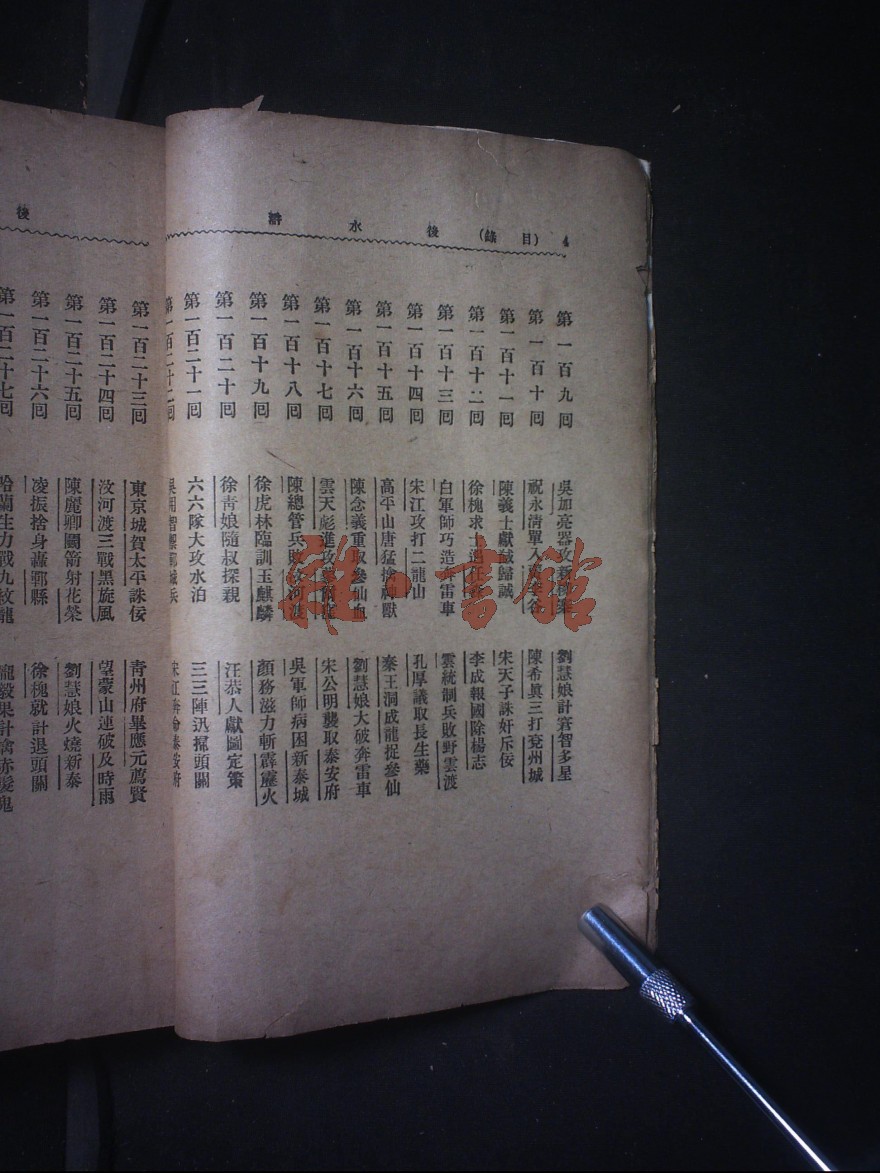 4 (目錄) 後水滸
第一百九回 吳加亮器攻新 劉慧娘計窘智多星
第一百十回 祝永清單入 陳希眞三打兗州城
第一百十一回 陳義士獻馘歸誠 宋天子誅奸斥佞
第一百十二回 徐槐求士過 李成報國除楊志
第一百十三回 白軍師巧造奔雷車 雲統制兵敗野雲渡
第一百十四回 宋江攻打二龍山 孔厚議取長生藥
第一百十五回 高平山唐猛擒神獸 秦王洞成龍捉參仙
第一百十六回 陳念義重取參仙血 劉慧娘大破奔雷車
第一百十七回 雲天彪進攻 宋公明襲取泰安府
第一百十八回 陳總管兵敗汶河渡 吳軍師病困新泰城
第一百十九回 徐虎林臨訓玉麒麟 顏務滋力斬霹靂火
第一百二十回 徐靑娘隨叔探親 汪恭人獻圖定策
第一百二十一回 六六隊大攻水泊 三三陣迅掃頭關
第一百二十二回 吳用智禦鄆城兵 宋江奔命泰安府
後
第一百二十三回 東京城賀太平誅佞 靑州府畢應元薦賢
第一百二十四回 汶河渡三戰黑旋風 望蒙山連破及時雨
第一百二十五回 陳麗卿鬭箭射花榮 劉慧娘火燒新泰
第一百二十六回 凌振捨身轟鄆縣 徐槐就計退頭關
第一百二十七回 哈蘭生力戰九紋龍 龐毅果計擒赤髮鬼
雜·書館